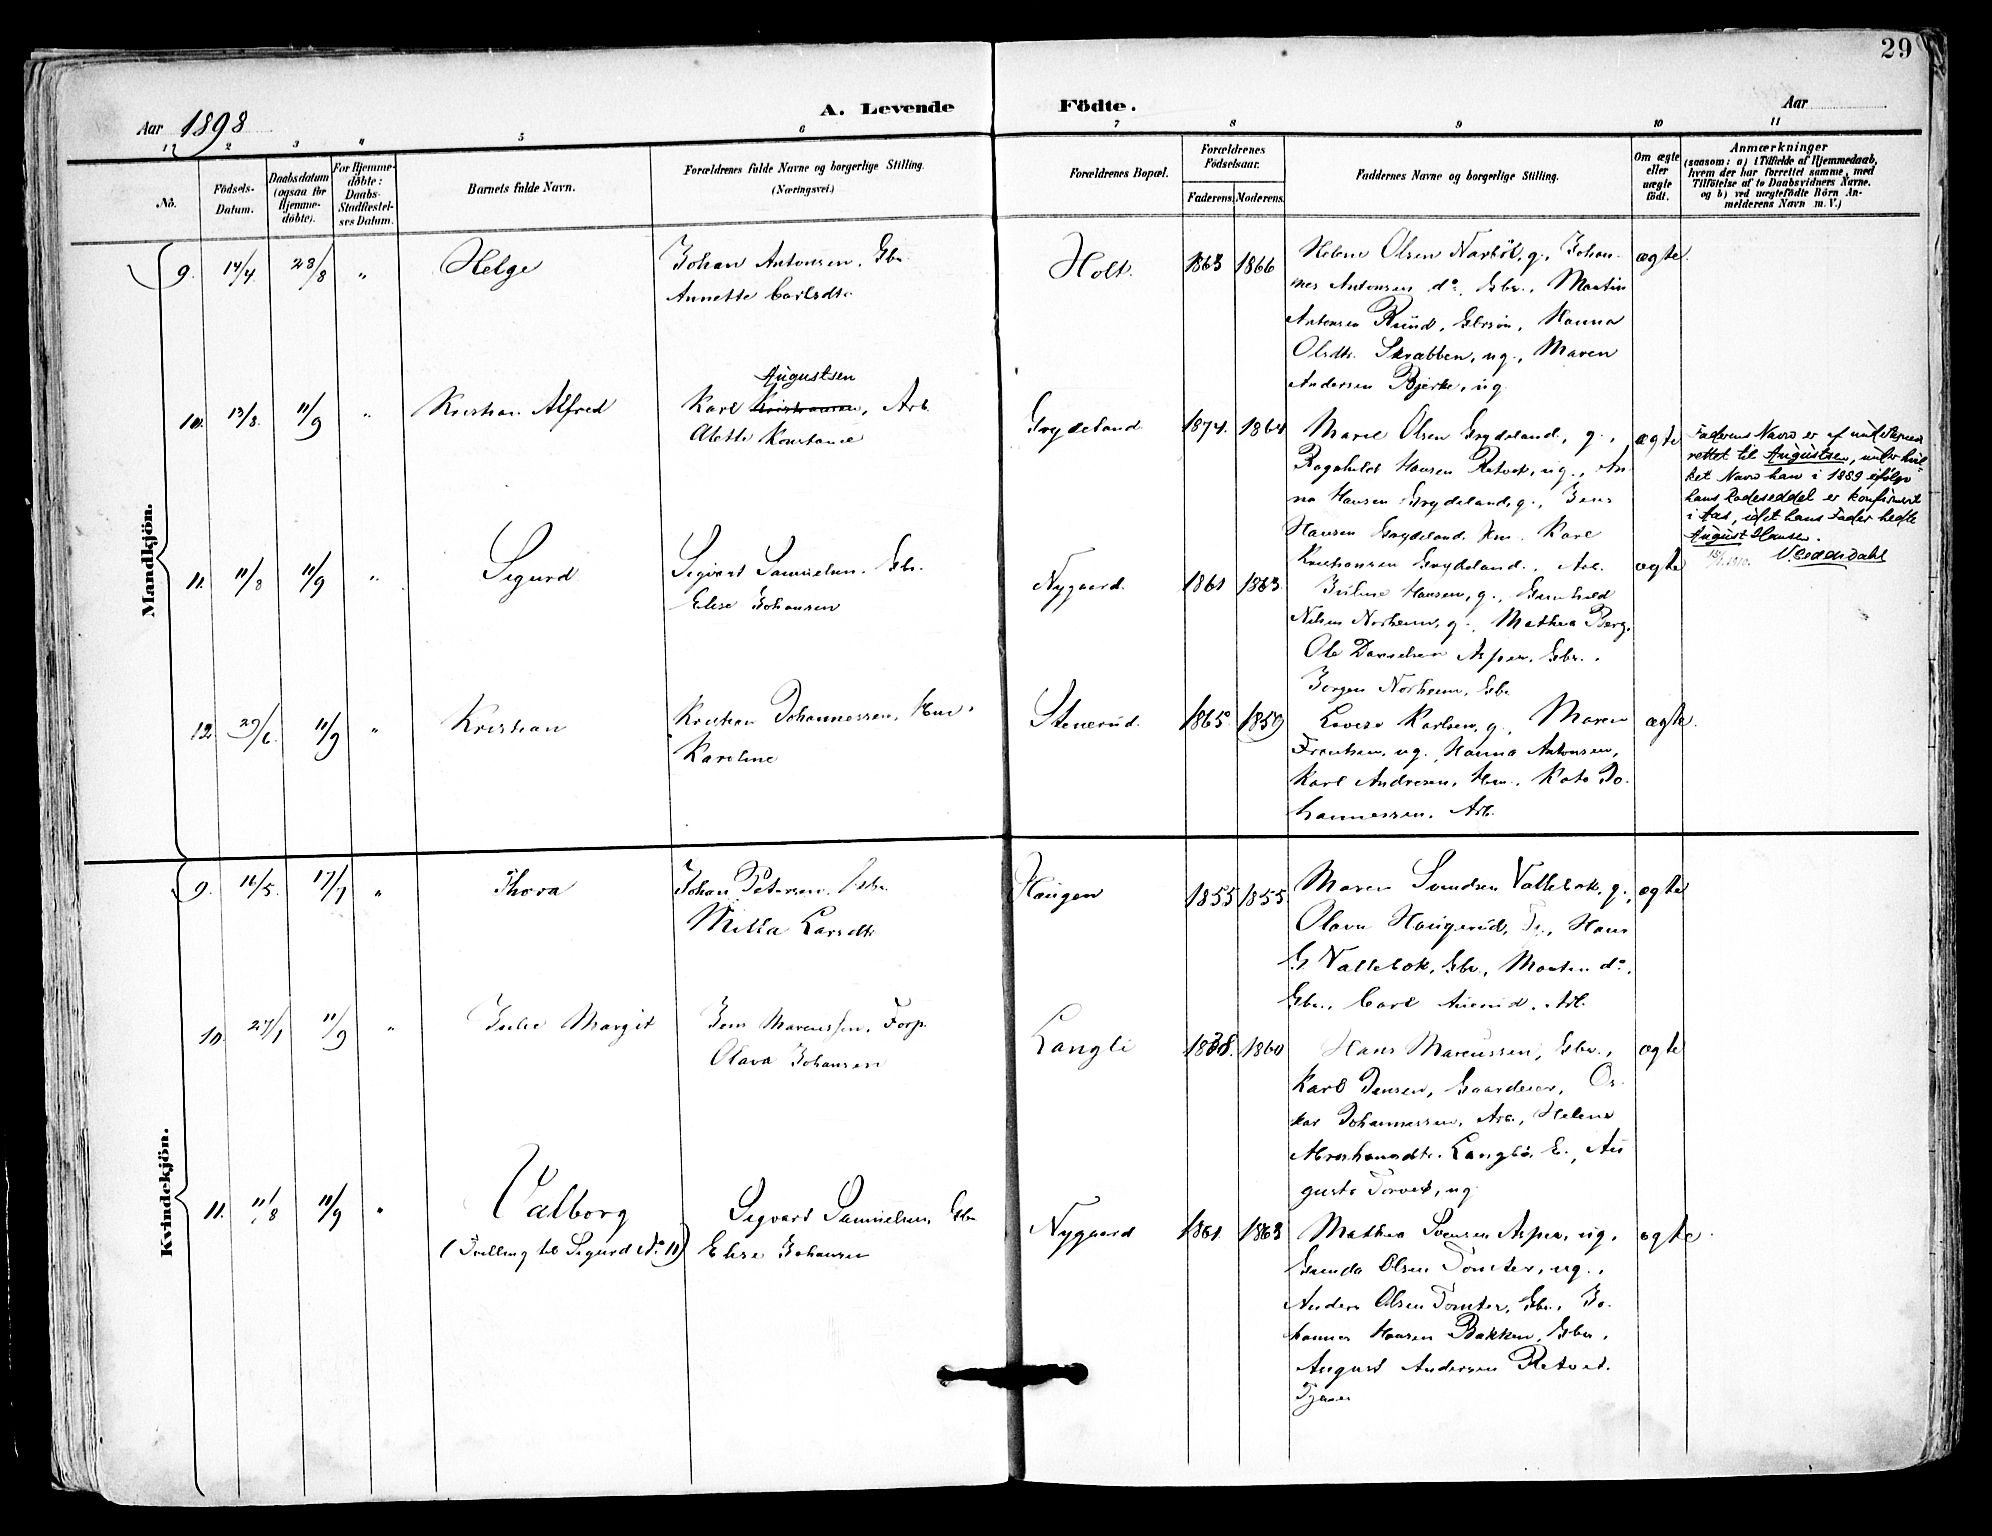 29
A. Levende Födte.
Aar 1898
Aar
1 2 3 " 5 6 7 8 9 10 11
No.
Födsels-Datum.
Daabsdatum (ogsaa for Hjemmedöbte).
For Hjemmedöbte: Daabs Stadfæstelses Datum.
Barnets fulde Navn.
Forældrenes fulde Navne og borgerlige Stilling. (Næringsvei.)
Forældrenes Bopæl.
Forældrenes Födselsaar.
Faderens. Moderens.
Faddernes Navne og borgerlige Stilling.
Om ægte eller uægte födt.
Anmærkninger
(saasom: a) i Tilfælde af Hjemmedaab, hvem der har forrettet samme, med Tilföielse af to Daabsvidners Navne. og b) ved uægtefödte Börn Anmelderens Navn m. V.)
Mandkjön.
9. 14/4. 28/8 " Helge
Johan Antonsen, Gbr.
Annette Carlsdtr.
Holt. 1863 1866
Helene Olsen Narböl, g., Johan-
nes Antonsen do, Gbr., Martin
Antonsen Rund, Gbrsön, Hanna
Olsdtr. Skrabben, ug., Maren
Andersen Bjerke, ug.
ægte.
10. 13/8. 11/9 " Kristian Alfred
Augustsen
Karl Kristiansen, Arb.
Alette Konstance
Grydeland 1874. 1864
Marie Olsen Grydeland, g.,
Ragnhild Hansen Retvet, ug., An-
na Hansen Grydeland, g., Jens
Hansen Grydeland, Hm. Karl
Kristiansen Grydeland, Arb.
ægte
Faderens Navn er af undertegnede
rettet til Augustsen, under hvil-
ket Navn han i 1889 ifölge
hans Daabseddel er konfirmert
i Aas, idet hans Fader hedte
August Hansen.
1910.
11. 11/8 11/9 " Sigurd
Sigvart Samuelsen. Gbr.
Elise Johansen
Nygaard. 1861 1863.
Juline Hansen, g., Gunhild
Nilsen Norheim, g., Mathea Berg,
Ole Danielsen Asper, Gbr.,
Jörgen Norheim, Gbr.
ægte
12. 29/6. 11/9 " Kristian
Kristian Johannessen, Hm.
Karoline
Stenerud. 1865 1859
Lovise Karlsen, g., Maren
Frantsen, ug., Hanna Antonsen,
Karl Andresen, Hm., Kato Jo-
hannessen, Arb.
ægte.
Kvindekjön.
9. 16/5. 17/7 " Thora
Johan Petersen, Gbr.
Milla Larsdtr.
Haugen 1855 1855
Maren Svendsen Vallebæk, g.,
Olava Haugerud, Tj., Hans
G. Vallebæk, Gbr., Morten do.
Gbr., Carl Auerud, Arb.
ægte
10. 27/1 11/9 " Julie Margit
Jens Marcussen, Forp.
Olava Johansen
Langli 1838. 1860
Hans Marcussen, Gbr.,
Karl Jensen, Gaardeier, Os-
kar Johannessen, Arb., Helene
Abrahamsdtr. Langbö, E., Au
gusta Torvet, ug.
ægte
11. 11/8 11/9 " Valborg
(Tvilling til Sigurd No 11)
Sigvart Samuelsen, Gbr.
Elise Johansen
Nygaard 1861. 1863
Mathea Svensen Asper, ug.
Gunda Olsen Tomter, ug.,
Anders Olsen Tomter, Gbr., Jo-
hannes Hansen Bakken, Gbr.,
August Andersen Retvet.
Tjener
ægte.